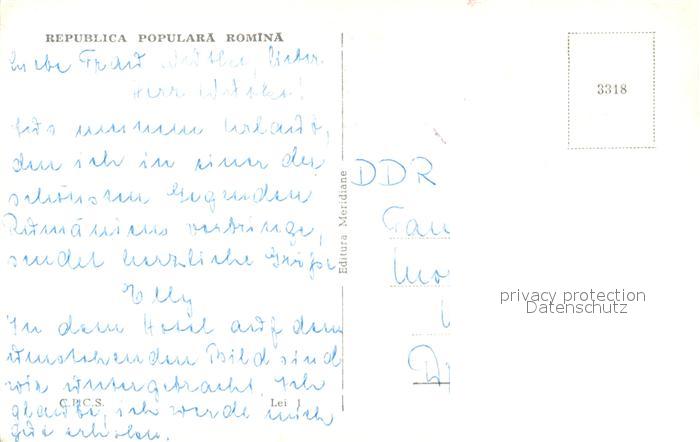 REPUBLICA POPULARĂ ROMÎNĂ
Liebe Frau lieber
Herr
Aus meinem Urlaub,
den ich in einer der
schönsten Gegenden
Rumäniens verbringe,
sendet herzliche Grüße
Elly
In dem Hotel auf dem
umstehenden Bild sind
wir untergebracht. Ich
glaube, ich werde mich
gut erholen.
C.P.C.S. Lei 1
Editura Meridiane
3318
DDR
Fam
privacy protection
Datenschutz